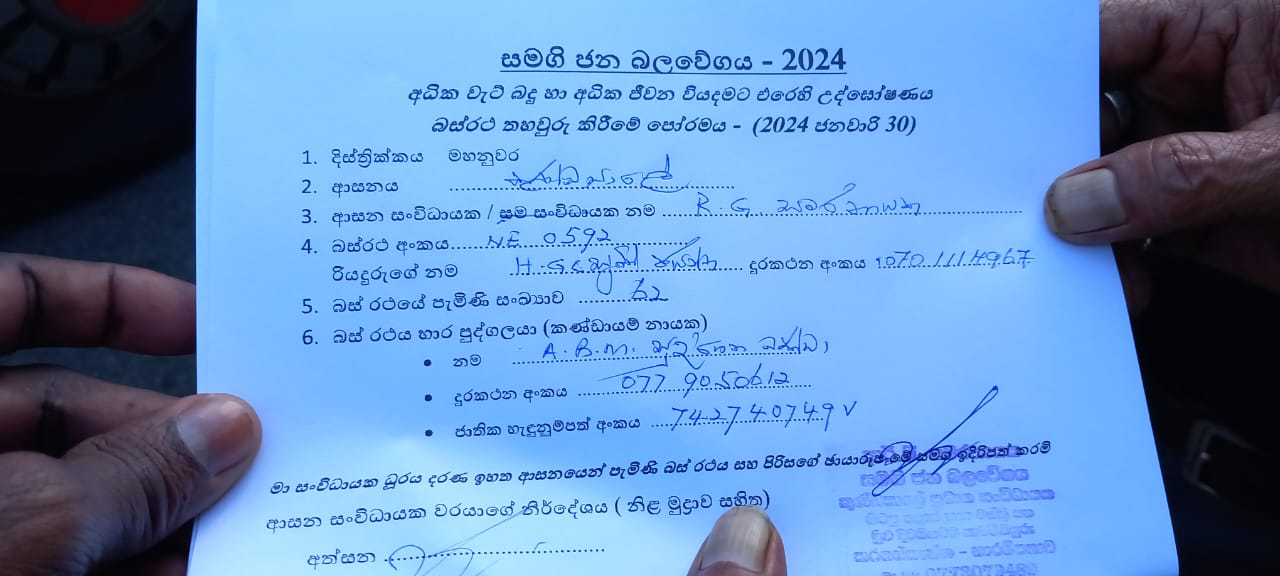 සමගි ජන බලවේගය - 2024
අධික වැට් බදු හා අධික ජීවන වියදමට එරෙහි උද්ඝෝෂණය
බස්රථ තහවුරු කිරීමේ පෝරමය - (2024 ජනවාරි 30)
1. දිස්ත්‍රික්කය මහනුවර
2. ආසනය
3. ආසන සංවිධායක / සම සංවිධායක නම R. G. සමරනායක
4. බස්රථ අංකය NE 0592
රියදුරුගේ නම H.G. දුරකථන අංකය 0701114967
5. බස් රථයේ පැමිණි සංඛ්‍යාව 62
6. බස් රථය භාර පුද්ගලයා (කණ්ඩායම් නායක)
• නම A.B.M. බණ්ඩා
• දුරකථන අංකය 077 9050612
• ජාතික හැඳුනුම්පත් අංකය 742740749V
මා සංවිධායක ධූරය දරණ ඉහත ආසනයෙන් පැමිණි බස් රථය සහ පිරිසගේ ඡායාරූප මේ සමඟ ඉදිරිපත් කරමි
සමගි ජන බලවේගය
ආසන සංවිධායක වරයාගේ නිර්දේශය ( නිළ මුද්‍රාව සහිත)
අත්සන